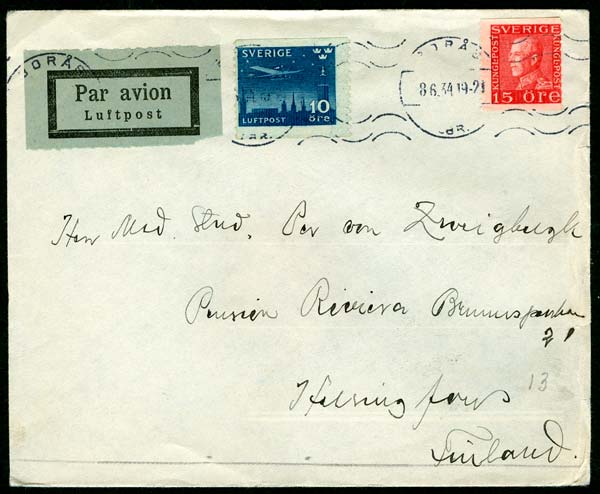 BORÅS
Par avion
Luftpost
SVERIGE
10
LUFTPOST öre
BORÅS
8.6.34.19-21
LBR.
SVERIGE
KUNGL·POST
KUNGL·POST
15 ÖRE
Herr Med. Stud. Per von Zweigbergk
Pension Riviera Brunnsparken
21
13
Helsingfors
Finland.